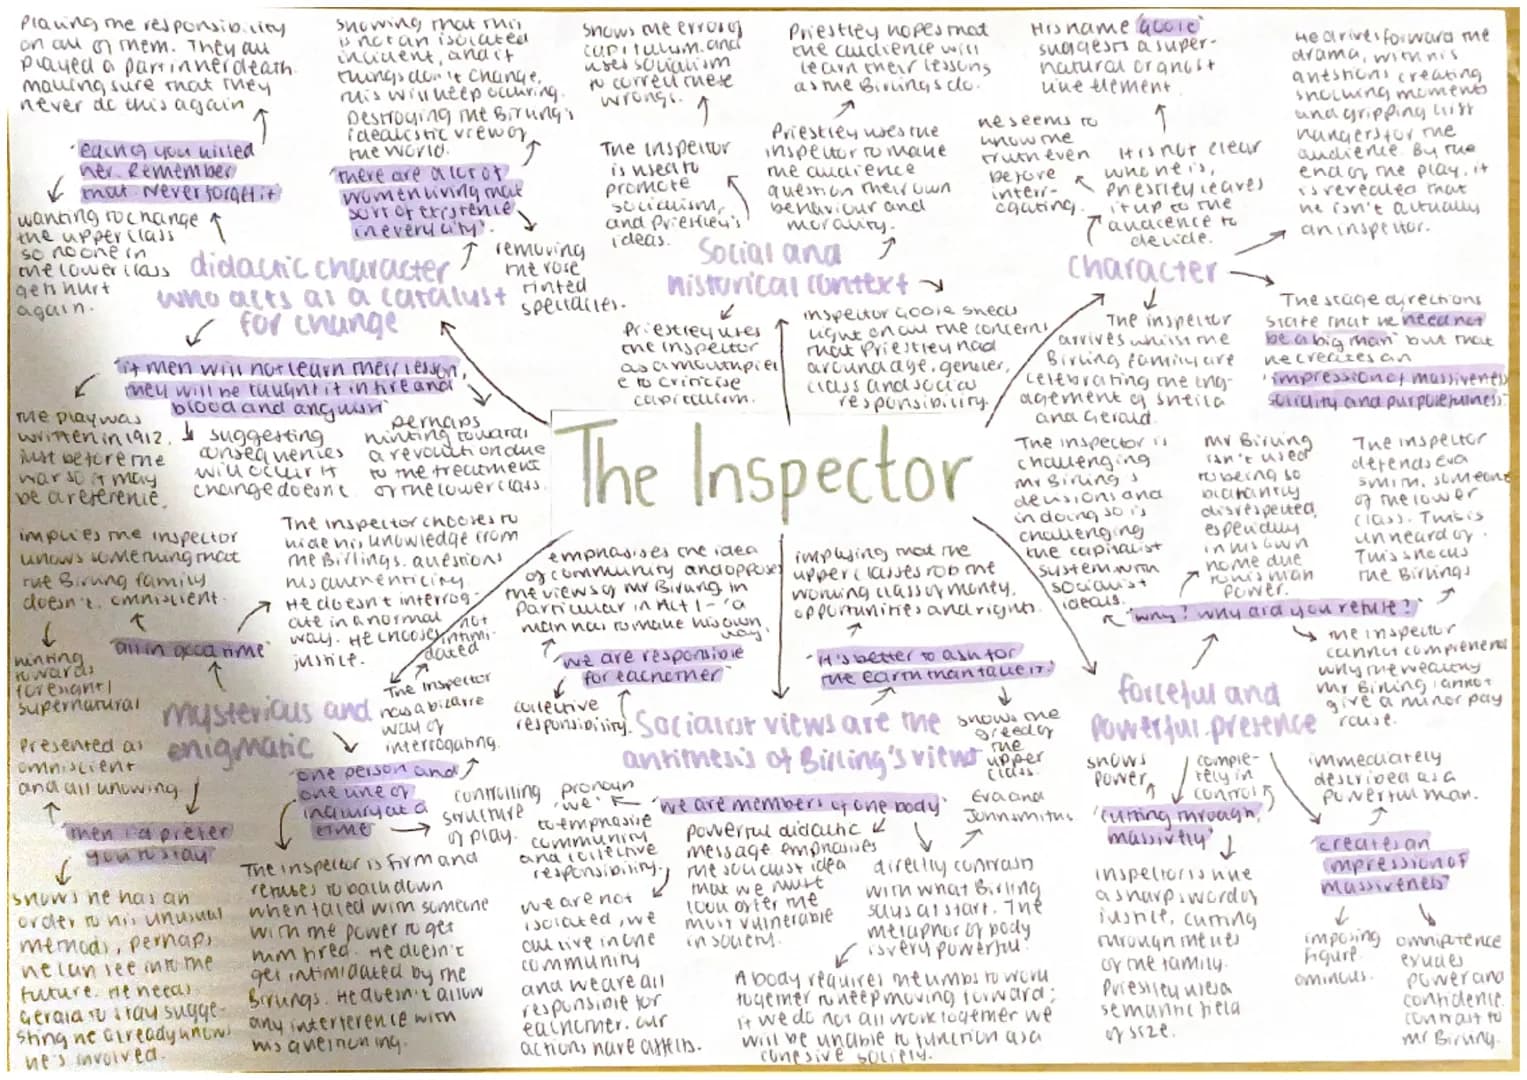 Placing the responsibility
on all of them. They all
played a part in her death.
making sure that they
never do this again
"each of you killed
her. Remember
that. Never forget it"
wanting to change
the upper class
so no one in
the lower class
gets hurt
again.
showing that this
is not an isolated
incident, and if
things don't change,
this will keep occuring.
Destroying the Birling's
idealistic view of
the world.
"there are a lot of
women living that
sort of existence
in every city".
removing
the rose
tinted
specticles.
didactic character
who acts as a catalyst
for change
"if men will not learn their lesson,
they will be taught it in fire and
blood and anguish"
The play was
written in 1912,
just before the
war so it may
be a reference.
suggesting
consequences
will occur if
change doesnt.
perhaps
hinting towards
a revolution due
to the treatment
of the lower class.
shows the errors of
capitalism and
uses socialism
to correct these
wrongs.
The Inspector
is used to
promote
socialism,
and Priestley's
ideas.
Priestley hopes that
the audience will
learn their lessons
as the Birlings do.
Priestley uses the
inspector to make
the audience
question their own
behaviour and
morality.
Social and
historical context
Priestley uses
the inspector
as a mouthpiec
e to criticise
capitalism.
Inspector Goole sheds
light on all the concerns
that Priestley had
around age, gender,
class and social
responsibility.
His name "Goole"
suggests a super-
natural or ghost
like element.
he seems to
know the
truth even
before
interr-
ogating.
It is not clear
who he is,
Priestley leaves
it up to the
audience to
decide.
He drives forward the
drama, with his
questions creating
shocking moments
and gripping cliff
hangers for the
audience. By the
end of the play, it
is revealed that
he isn't actually
an inspector.
character
The inspector
arrives whilst the
Birling family are
celebrating the eng-
agement of Sheila
and Gerald.
The stage directions
state that he "need not
be a big man" but that
he creates an
"impression of massiveness,
solidity and purposefulness".
The Inspector
The inspector is
challenging
Mr Birling's
decisions and
in doing so is
challenging
the capitalist
system with
socialist
ideals.
Mr Birling
isn't used
to being so
blatantly
disrespected,
especially
in his own
home due
to his man
power.
The inspector
defends Eva
Smith, someone
of the lower
class. This is
unheard of.
This shocks
the Birlings
"Why? Why did you refuse?"
The inspector
cannot comprehend
why the wealthy
Mr Birling cannot
give a minor pay
raise.
forceful and
powerful presence
shows
power
comple-
tely in
control
"cutting through,
massively"
Inspector is like
a sharp sword of
justice, cutting
through the lies
of the family.
Priestley uses a
semantic field
of size.
immediately
described as a
powerful man.
"creates an
impression of
massiveness"
imposing
figure.
ominous.
omnipotence
exudes
power and
confidence.
contrast to
Mr Birling.
implies the inspector
knows something that
the Birling family
doesn't. omniscient.
hinting
towards
foresight/
supernatural
"all in good time"
The inspector chooses to
hide his knowledge from
the Birlings. questions
his authenticity.
He doesn't interrog-
ate in a normal
way. He chooses
justice.
not
intimi-
dated
The inspector
has a bizarre
way of
interrogating.
mysterious and
enigmatic
Presented as
omniscient
and all knowing
"then I'd prefer
you to stay"
shows he has an
order to his unusual
methods, perhaps
he can see into the
future. He needs
Gerald to stay sugge-
sting he already knows
he's involved.
"one person and
one line of
inquiry at a
time"
controlling
structure
of play.
The inspector is firm and
refuses to back down
when faced with someone
with the power to get
him fired. He doesn't
get intimidated by the
Birlings. He doesn't allow
any interference with
his questioning.
emphasises the idea
of community and opposes
the views of Mr Birling in
particular in Act 1 - 'a
man has to make his own
way.'
"we are responsible
for each other"
collective
responsibility.
implying that the
upper classes rob the
working class of money,
opportunities and rights.
"it's better to ask for
the earth than take it."
shows the
greed of
the
upper
class.
Socialist views are the
antithesis of Birling's views
pronoun
'we'
to emphasise
community
and collective
responsibility.
"we are members of one body"
Eva and
John Smiths
we are not
isolated, we
all live in one
community
and we are all
responsible for
each other. our
actions have affects.
powerful didactic
message emphasises
the socialist idea
that we must
look after the
most vulnerable
in society.
directly contrasts
with what Birling
says at start. The
metaphor of body
is very powerful.
A body requires the limbs to work
together to keep moving forward;
if we do not all work together we
will be unable to function as a
cohesive society.